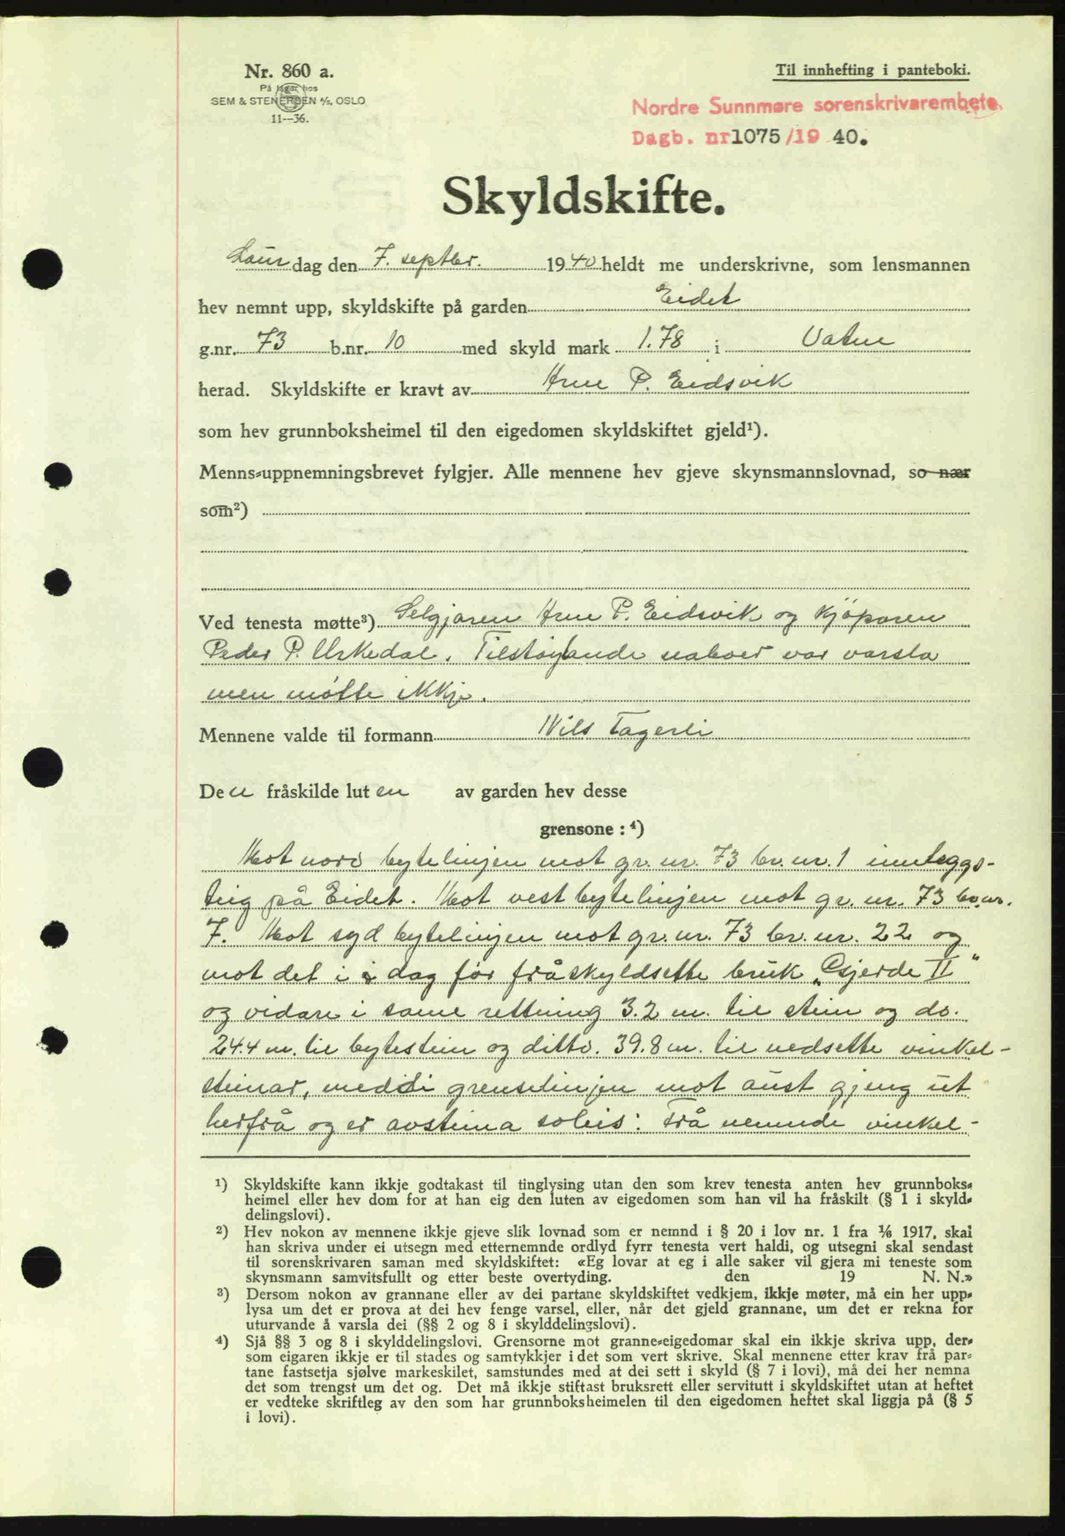 Nr. 860 a.
På lager hos
SEM & STENERSEN A/S, OSLO
11—36.
Til innhefting i panteboki.
Nordre Sunnmøre sorenskrivarembete.
Dagb. nr 1075/19 40.
Skyldskifte.
Laur dag den 7. septbr. 1940 heldt me underskrivne, som lensmannen
hev nemnt upp, skyldskifte på garden Eidet
g.nr. 73 b.nr. 10 med skyld mark 1.78 i Vatne
herad. Skyldskifte er kravt av Arne P. Eidsvik
som hev grunnboksheimel til den eigedomen skyldskiftet gjeld¹).
Menns-uppnemningsbrevet fylgjer. Alle mennene hev gjeve skynsmannslovnad, so nær
som²)
Ved tenesta møtte³) Selgjaren Arne P. Eidsvik og kjöparen
Peder P. Urkedal. Tilstøytande naboer var varsla
men møtte ikkje.
Mennene valde til formann Nils Fagerli
Den fråskilde luten av garden hev desse
grensone : ⁴)
Mot nord bytelinjen mot gr. nr. 73 br. nr. 1 innleggs-
teig på Eidet. Mot vest bytelinjen mot gr. nr. 73 br. nr.
7. Mot syd bytelinjen mot gr. nr. 73 br. nr. 22 og
mot det i dag før fråskyldsette bruk „Gjerde II"
og vidare i same rettning 3.2 m. til stein og do.
24.4 m. til bytestein og ditto. 39.8 m. til nedsette vinkel-
steinar, medi grenselinjen mot aust gjeng ut
herfrå og er avsteina soleis: Frå nemnde vinkel-
¹) Skyldskifte kann ikkje godtakast til tinglysing utan den som krev tenesta anten hev grunnboks-
heimel eller hev dom for at han eig den luten av eigedomen som han vil ha fråskilt (§ 1 i skyld-
delingslovi).
²) Hev nokon av mennene ikkje gjeve slik lovnad som er nemnd i § 20 i lov nr. 1 fra ⅙ 1917, skal
han skriva under ei utsegn med etternemnde ordlyd fyrr tenesta vert haldi, og utsegni skal sendast
til sorenskrivaren saman med skyldskiftet: «Eg lovar at eg i alle saker vil gjera mi teneste som
skynsmann samvitsfullt og etter beste overtyding. den 19 N. N.»
³) Dersom nokon av grannane eller av dei partane skyldskiftet vedkjem, ikkje møter, må ein her upp-
lysa um det er prova at dei hev fenge varsel, eller, når det gjeld grannane, um det er rekna for
uturvande å varsla dei (§§ 2 og 8 i skylddelingslovi).
⁴) Sjå §§ 3 og 8 i skylddelingslovi. Grensorne mot granne-eigedomar skal ein ikkje skriva upp, der-
som eigaren ikkje er til stades og samtykkjer i det som vert skrive. Skal mennene etter krav frå par-
tane fastsetja sjølve markeskilet, samstundes med at dei sett i skyld (§ 7 i lovi), må dei her nemna
det som trengst um det og. Det må ikkje stiftast bruksrett eller servitutt i skyldskiftet utan at heftet
er vedteke skriftleg av den som har grunnboksheimelen til den eigedomen heftet skal liggja på (§ 5
i lovi).